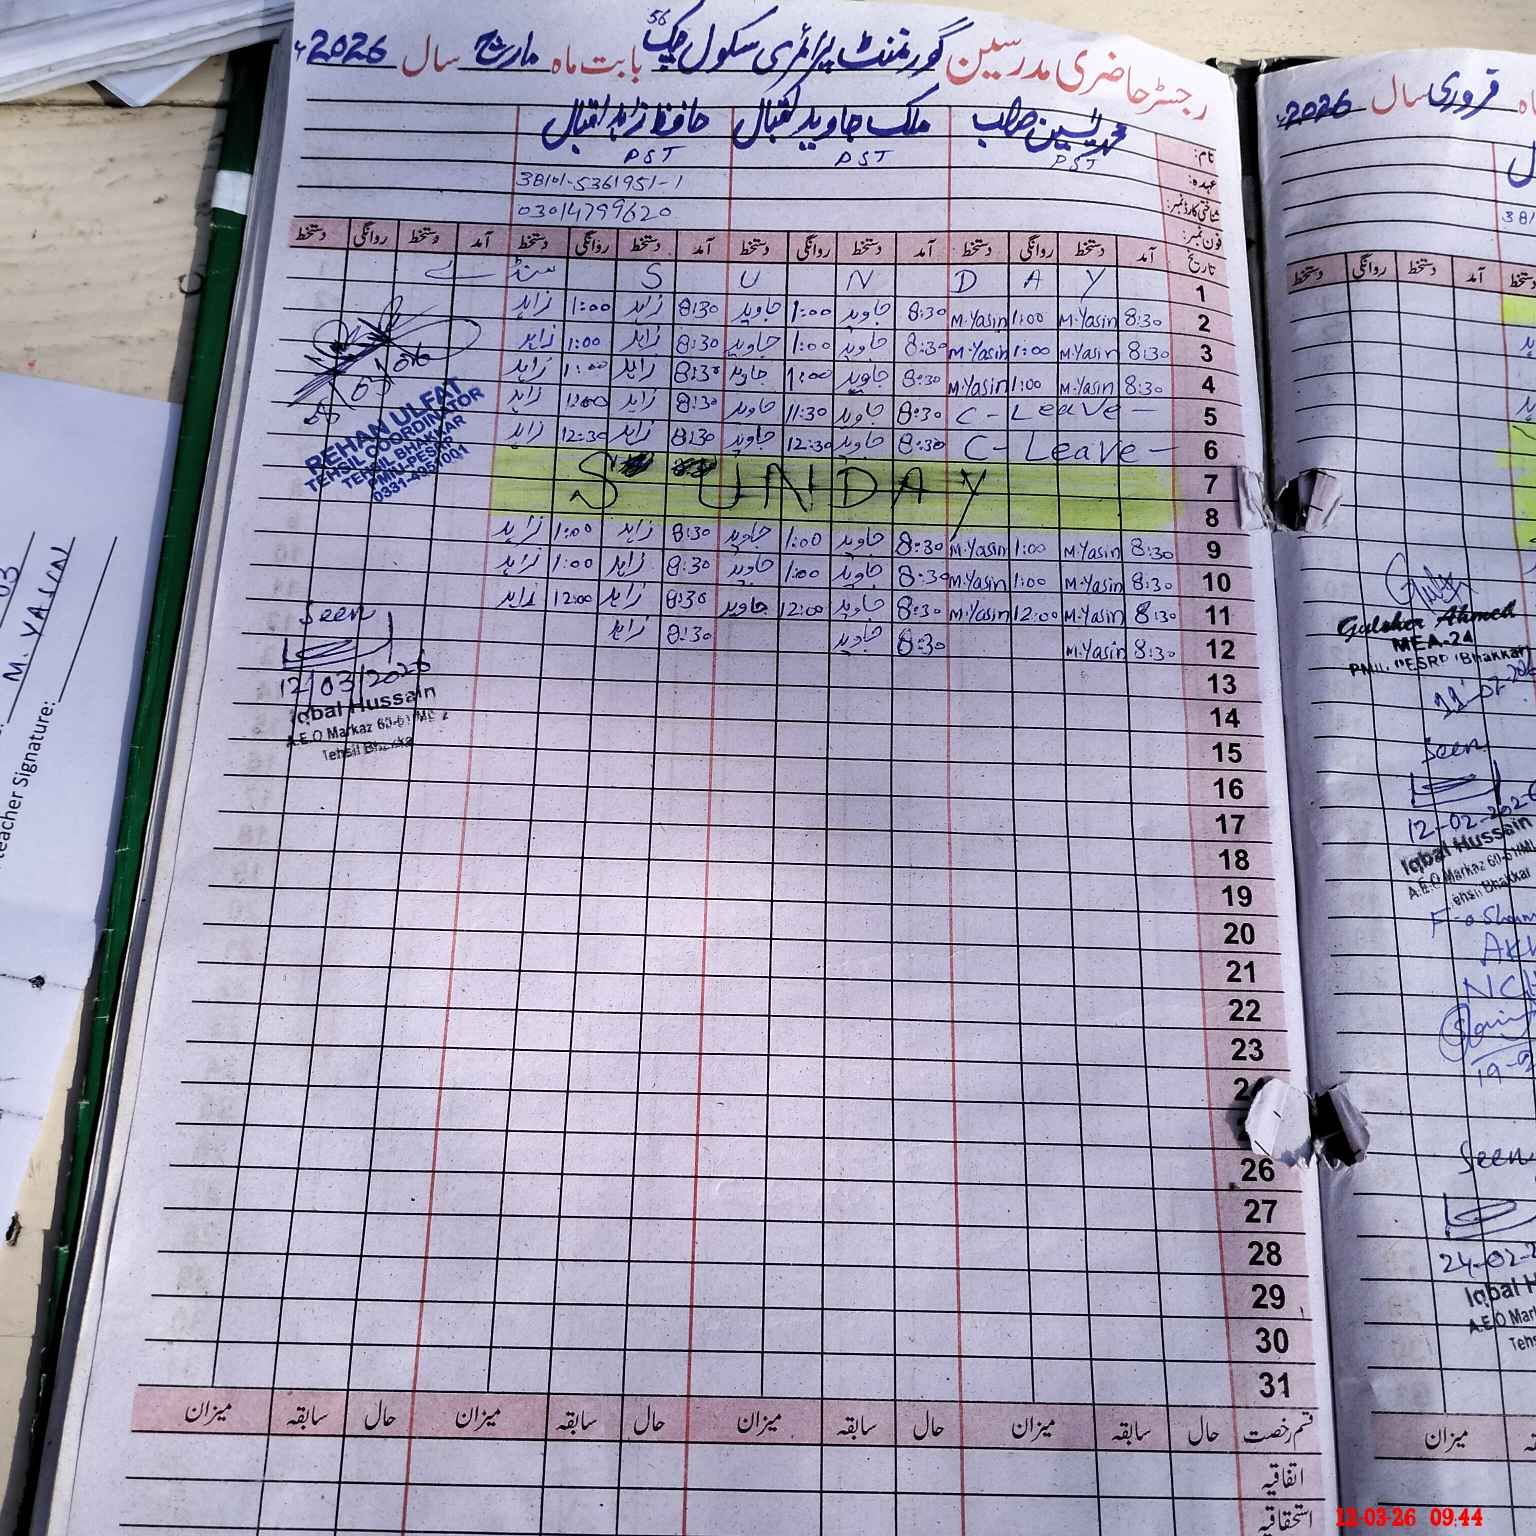 رجسٹر حاضری مدرسین گورنمنٹ پرائمری سکول چک 56 بابت ماہ مارچ سال 2026ء
نام: محمد یٰسین صاحب ملک جاوید اقبال حافظ زاہد اقبال
عہدہ: PST PST PST
شناختی کارڈ نمبر: 38101-5361951-1
فون نمبر: 03014799620
تاریخ آمد دستخط روانگی دستخط آمد دستخط روانگی دستخط آمد دستخط روانگی دستخط آمد دستخط روانگی دستخط
1 S U N D A Y سنڈے
2 8:30 M.Yasin 1:00 M.Yasin 8:30 جاوید 1:00 جاوید 8:30 زاہد 1:00 زاہد
3 8:30 M.Yasin 1:00 M.Yasin 8:30 جاوید 1:00 جاوید 8:30 زاہد 1:00 زاہد
4 8:30 M.Yasin 1:00 M.Yasin 8:30 جاوید 1:00 جاوید 8:30 زاہد 1:00 زاہد
5 C-Leave- 8:30 جاوید 11:30 جاوید 8:30 زاہد زاہد
6 C-Leave- 8:30 جاوید 12:30 جاوید 8:30 زاہد 12:30 زاہد
7 SUNDAY
8
9 8:30 M.Yasin 1:00 M.Yasin 8:30 جاوید 1:00 جاوید 8:30 زاہد 1:00 زاہد
10 8:30 M.Yasin 1:00 M.Yasin 8:30 جاوید 1:00 جاوید 8:30 زاہد 1:00 زاہد
11 8:30 M.Yasin 12:00 M.Yasin 8:30 جاوید 12:00 جاوید 8:30 زاہد 12:00 زاہد
12 8:30 M.Yasin 8:30 جاوید 8:30 زاہد
13
14
15
16
17
18
19
20
21
22
23
24
26
27
28
29
30
31
قسم رخصت حال سابقہ میزان حال سابقہ میزان حال سابقہ میزان حال سابقہ میزان
اتفاقیہ
استحقاقیہ
REHAN ULFAT
TEHSIL COORDINATOR
TEHSIL BHAKKAR
PMIU-PESRP
Seen
12/03/2026
Iqbal Hussain
A.E.O Markaz
Tehsil Bhakkar
فروری سال 2026ء
آمد دستخط روانگی دستخط
Gulsher Ahmed
MEA-24
PMIU PESRP (Bhakkar)
Seen
12-02-2026
Iqbal Hussain
A.E.O Markaz 60-61/ML
Tehsil Bhakkar
Seen
24-02-2
Iqbal H
A.E.O Mar
Tehs
میزان
M. YASIN
eacher Signature:
12-03-26 09:44